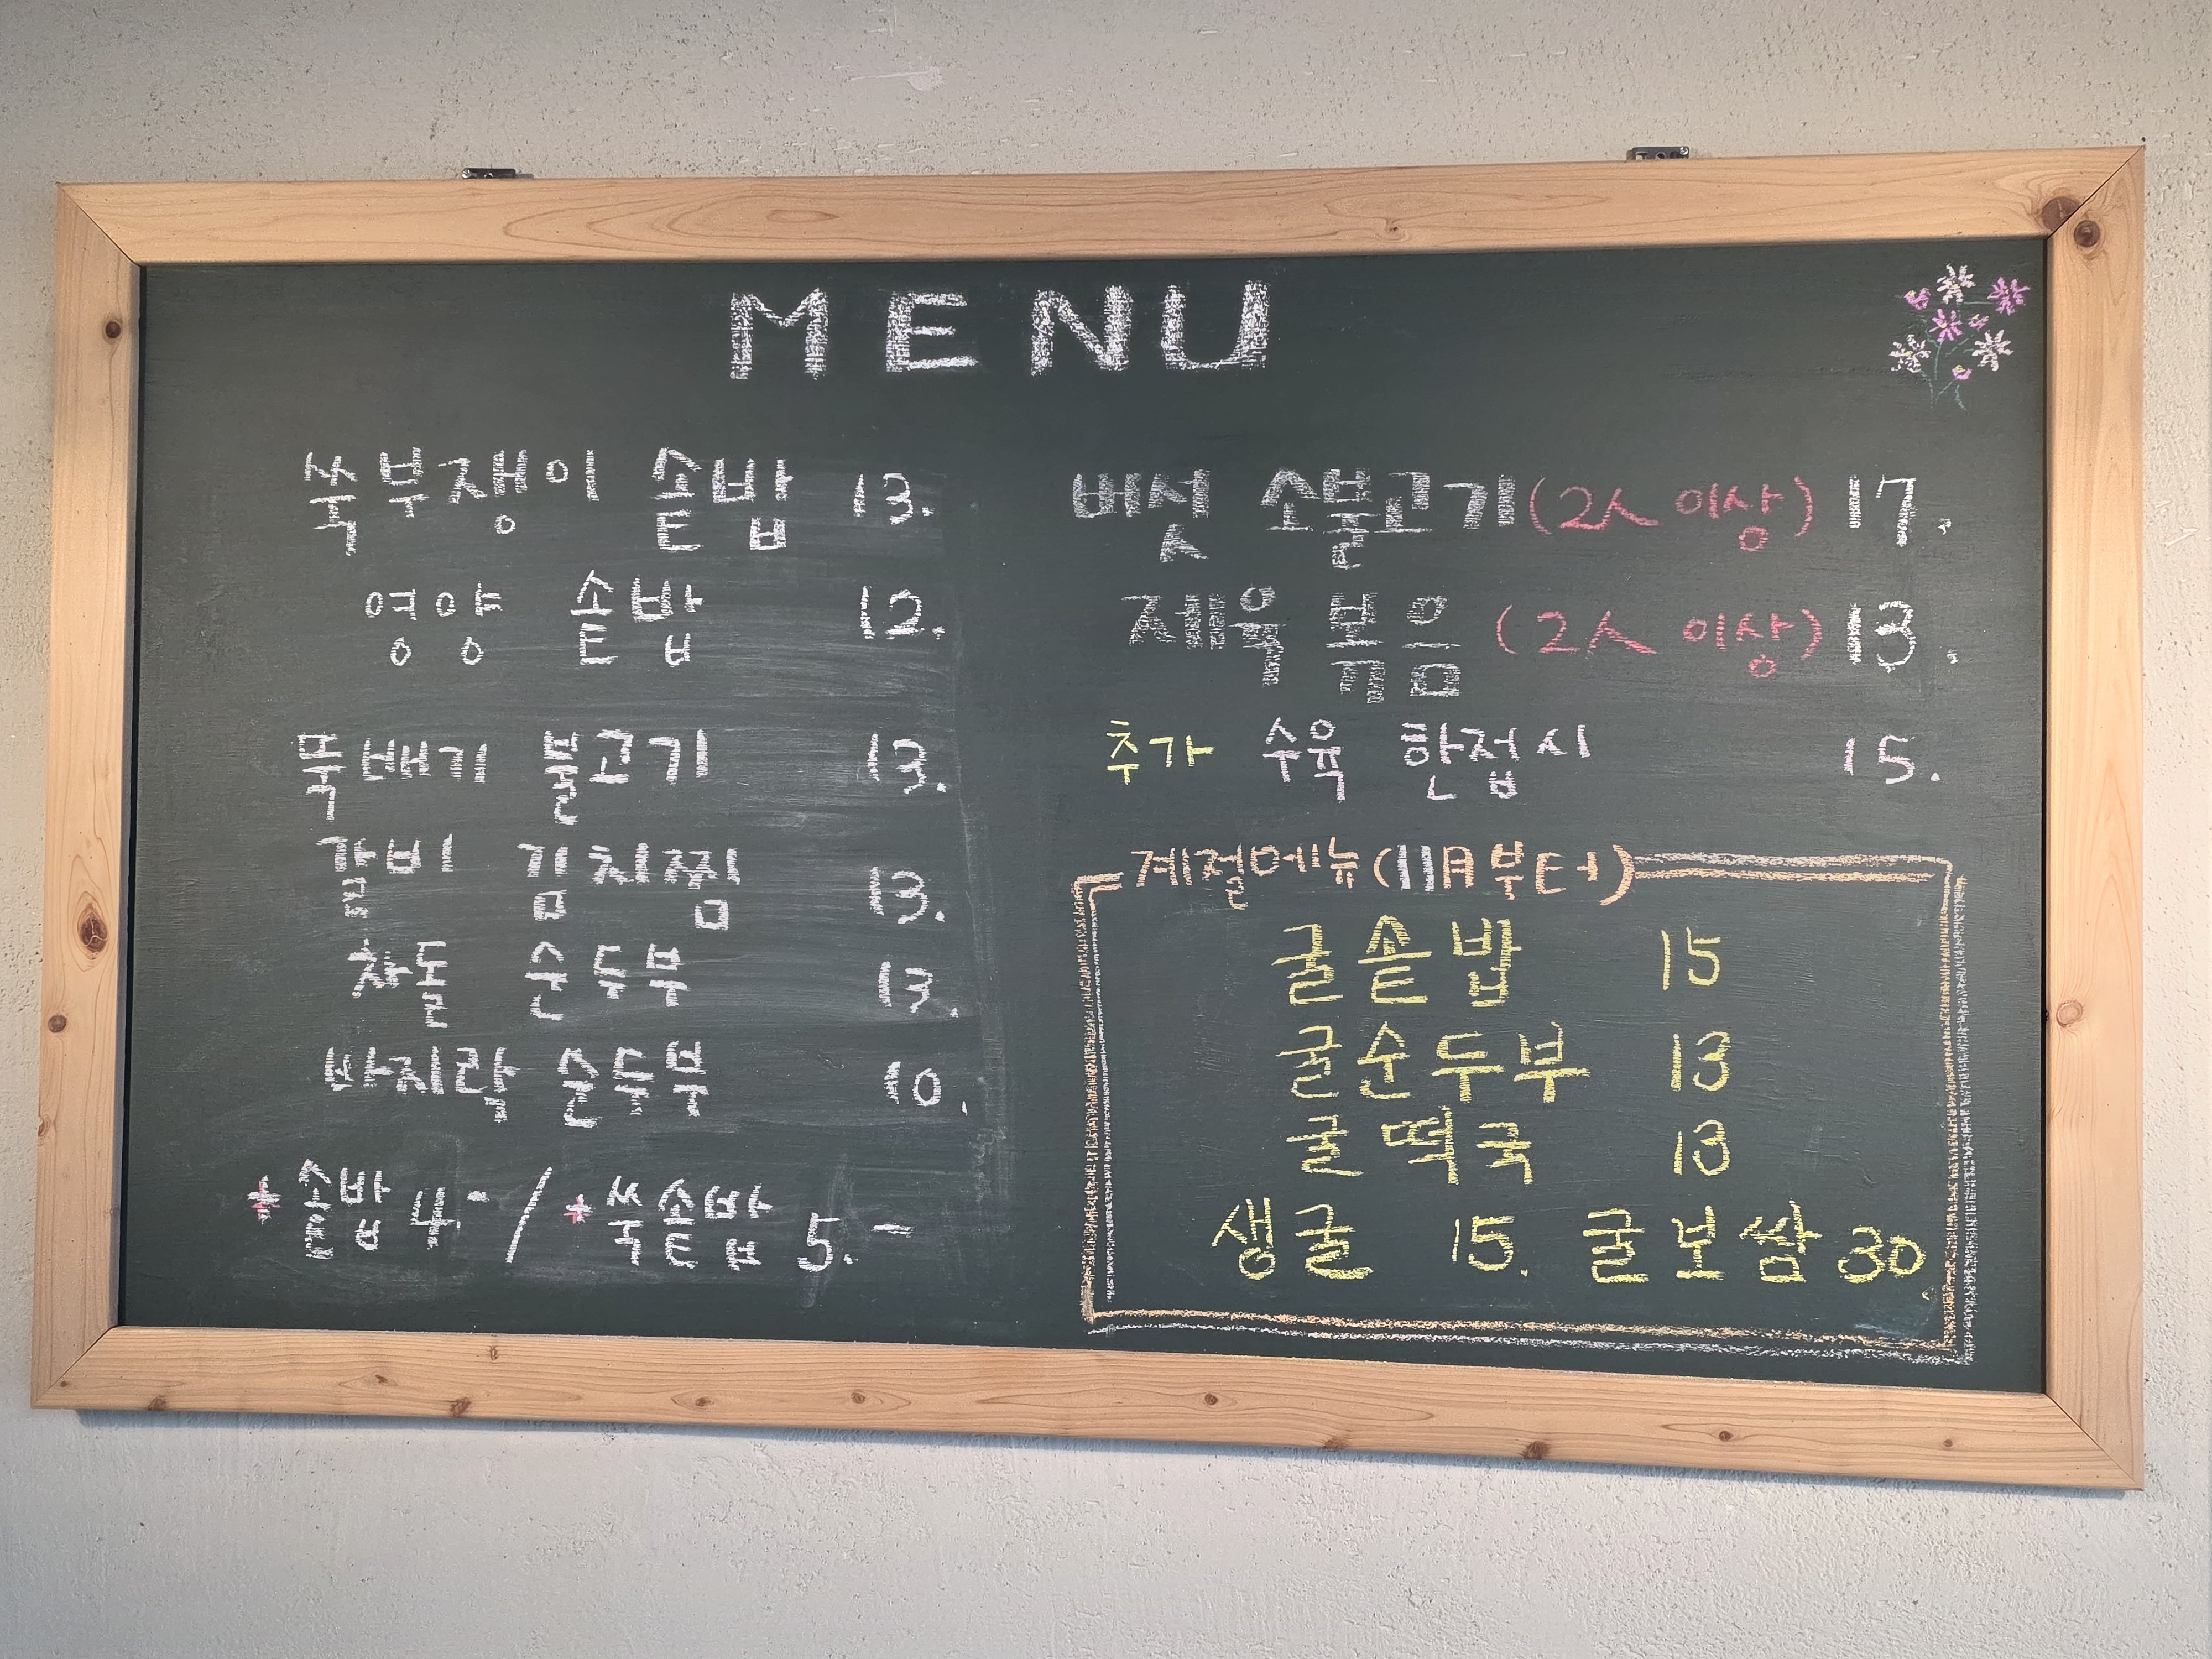 MENU
쑥부쟁이 솥밥 13.
영양 솥밥 12.
뚝배기 불고기 13.
갈비 김치찜 13.
차돌 순두부 13.
바지락 순두부 10.
* 솥밥 4.- / * 쑥솥밥 5.-
버섯 소불고기 (2人 이상) 17.
제육 볶음 (2人 이상) 13.
추가 수육 한접시 15.
계절메뉴 (11月부터)
굴솥밥 15
굴순두부 13
굴떡국 13
생굴 15. 굴보쌈 30